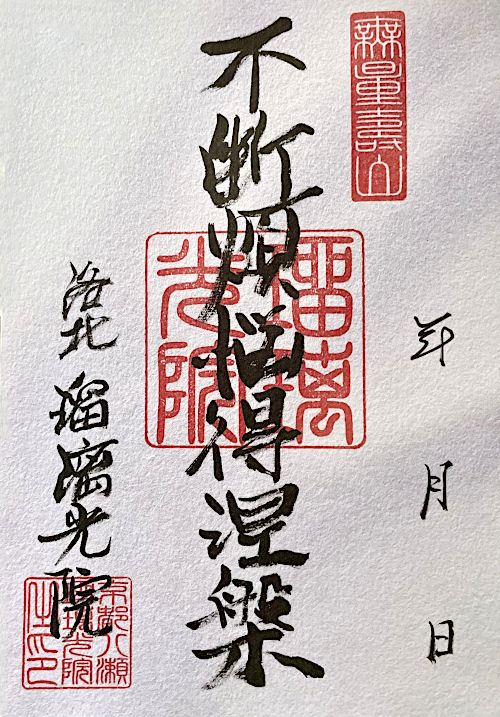 無量壽山
年 月 日
不断煩悩得涅槃
瑠璃
光院
洛北 瑠璃光院
京都八瀬
瑠璃光院
之印